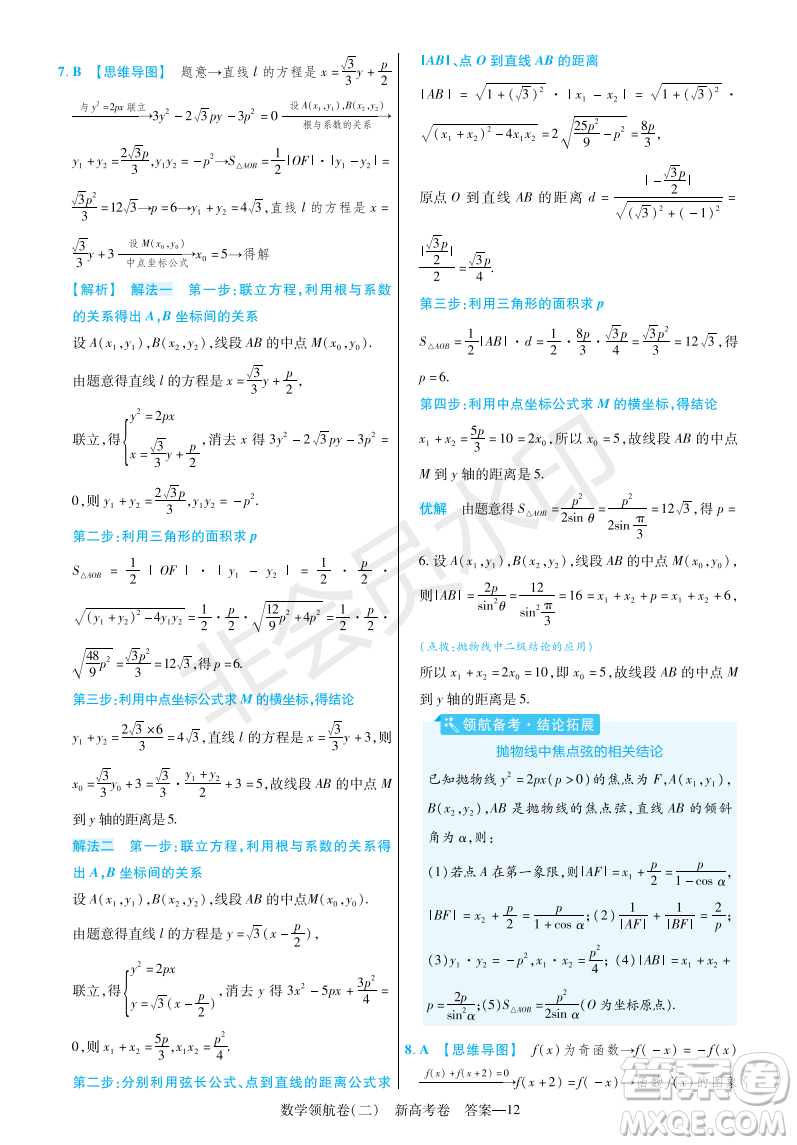 7. B 【思维导图】 题意→直线 l 的方程是 x=√3/3y+p/2
与 y²=2px 联立→3y²-2√3py-3p²=0 设 A(x₁,y₁),B(x₂,y₂) 根与系数的关系→
y₁+y₂=2√3p/3,y₁y₂=-p²→S△AOB=1/2|OF|·|y₁-y₂|=
√3p²/3=12√3→p=6→y₁+y₂=4√3,直线 l 的方程是 x=
√3/3y+3 设 M(x₀,y₀) 中点坐标公式→x₀=5→得解
【解析】 解法一 第一步:联立方程,利用根与系数
的关系得出 A,B 坐标间的关系
设 A(x₁,y₁),B(x₂,y₂),线段 AB 的中点 M(x₀,y₀).
由题意得直线 l 的方程是 x=√3/3y+p/2,
联立,得{y²=2px x=√3/3y+p/2,消去 x 得 3y²-2√3py-3p²=
0,则 y₁+y₂=2√3p/3,y₁y₂=-p².
第二步:利用三角形的面积求 p
S△AOB=1/2|OF|·|y₁-y₂|=1/2·p/2·
√(y₁+y₂)²-4y₁y₂=1/2·p/2·√12/9p²+4p²=1/2·p/2·
√48/9p²=√3p²/3=12√3,得 p=6.
第三步:利用中点坐标公式求 M 的横坐标,得结论
y₁+y₂=2√3×6/3=4√3,直线 l 的方程是 x=√3/3y+3,则
x₀=√3/3y₀+3=√3/3·y₁+y₂/2+3=5,故线段 AB 的中点 M
到 y 轴的距离是 5.
解法二 第一步:联立方程,利用根与系数的关系得
出 A,B 坐标间的关系
设 A(x₁,y₁),B(x₂,y₂),线段 AB 的中点M(x₀,y₀).
由题意得直线 l 的方程是 y=√3(x-p/2),
联立,得{y²=2px y=√3(x-p/2),消去 y 得 3x²-5px+3p²/4=
0,则 x₁+x₂=5p/3,x₁x₂=p²/4.
第二步:分别利用弦长公式、点到直线的距离公式求
|AB|、点 O 到直线 AB 的距离
|AB|=√1+(√3)²·|x₁-x₂|=√1+(√3)²·
√(x₁+x₂)²-4x₁x₂=2√25p²/9-p²=8p/3,
原点 O 到直线 AB 的距离 d=|-√3p/2|/√(√3)²+(-1)²=
|√3p/2|/2=√3p/4.
第三步:利用三角形的面积求 p
S△AOB=1/2|AB|·d=1/2·8p/3·√3p/4=√3p²/3=12√3,得
p=6.
第四步:利用中点坐标公式求 M 的横坐标,得结论
x₁+x₂=5p/3=10=2x₀,所以 x₀=5,故线段 AB 的中点
M 到 y 轴的距离是 5.
优解 由题意得 S△AOB=p²/2sin θ=p²/2sin π/3=12√3,得 p=
6.设 A(x₁,y₁),B(x₂,y₂),线段 AB 的中点 M(x₀,y₀),
则|AB|=2p/sin²θ=12/sin²π/3=16=x₁+x₂+p=x₁+x₂+6,
(点拨:抛物线中二级结论的应用)
所以 x₁+x₂=2x₀=10,即 x₀=5,故线段 AB 的中点 M
到 y 轴的距离是 5.
领航备考·结论拓展
抛物线中焦点弦的相关结论
已知抛物线 y²=2px(p>0)的焦点为 F,A(x₁,y₁),
B(x₂,y₂),AB 是抛物线的焦点弦,直线 AB 的倾斜
角为 α,则:
(1)若点 A 在第一象限,则|AF|=x₁+p/2=p/1-cos α,
|BF|=x₂+p/2=p/1+cos α;(2)1/|AF|+1/|BF|=2/p;
(3)y₁·y₂=-p²,x₁·x₂=p²/4;(4)|AB|=x₁+x₂+
p=2p/sin²α;(5)S△AOB=p²/2sin α(O 为坐标原点).
8. A 【思维导图】 f(x)为奇函数→f(-x)=-f(x)
f(x)+f(x+2)=0→f(x+2)=f(-x)→函数 f(x)的图象
数学领航卷(二) 新高考卷 答案—12
非会员水印